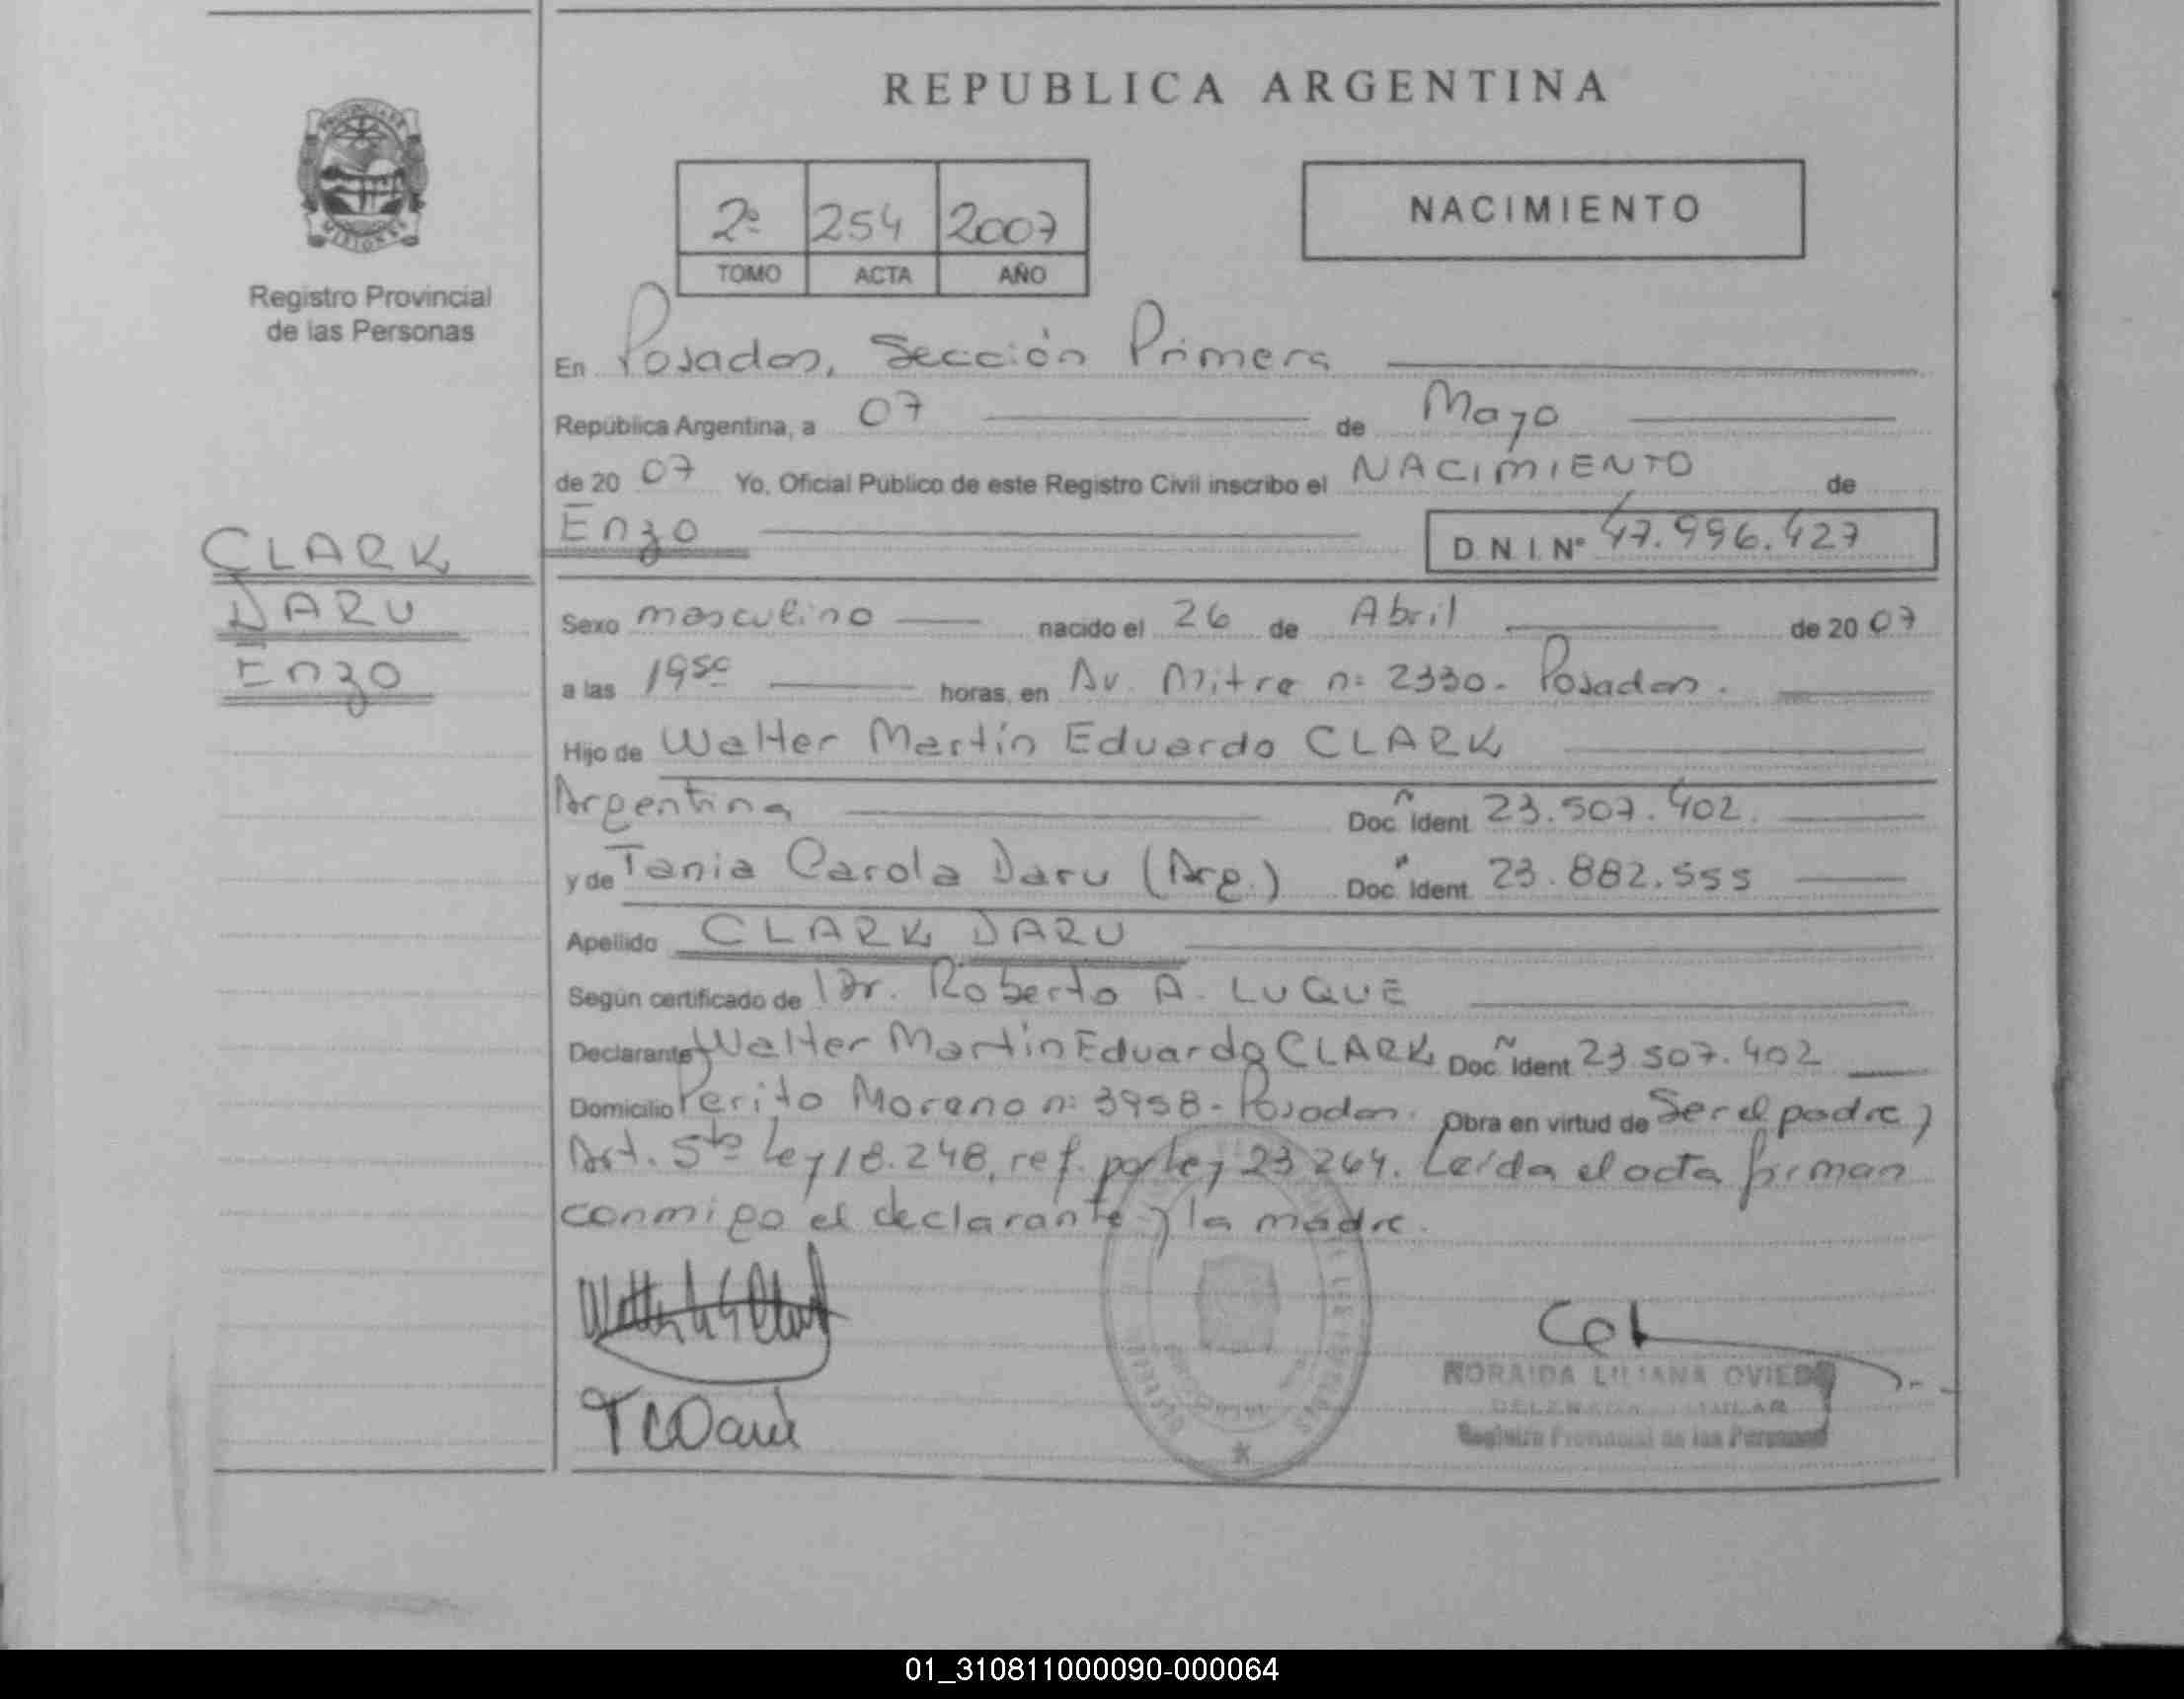 REPUBLICA ARGENTINA
PROVINCIA DE
MISIONES
Registro Provincial
de las Personas
2º 254 2007
TOMO ACTA AÑO
NACIMIENTO
En Posadas, Sección Primera
República Argentina, a 07 de Mayo
de 20 07 Yo, Oficial Público de este Registro Civil inscribo el NACIMIENTO de
Enzo D.N.I. Nº 47.996.427
CLARK
DARU
Enzo
Sexo masculino nacido el 26 de Abril de 20 07
a las 19⁵⁰ horas, en Av. Mitre nº 2330- Posadas.
Hijo de Walter Martín Eduardo CLARK
Argentina Doc. Ident 23.507.402.
y de Tania Carola Daru (Arg.) Doc. Ident. 23.882.555
Apellido CLARK DARU
Según certificado de Dr. Roberto A. LUQUE
Declarante Walter Martín Eduardo CLARK Doc. Ident 23.507.402
Domicilio Perito Moreno nº 3958- Posadas. Obra en virtud de Ser el padre y
Art. 5to Ley 18.248, ref. por ley 23264. Leída el acta firman
conmigo el declarante y la madre.
TCDaru
NORAIDA LILIANA OVIEDO
Registro Provincial de las Personas
01_310811000090-000064